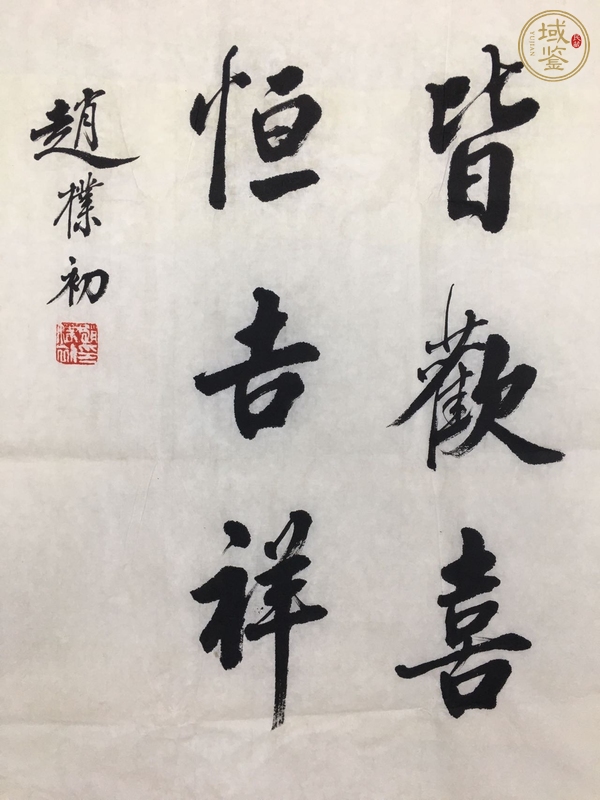 皆歡喜
恒吉祥
趙樸初
域鑒
YUJIAN